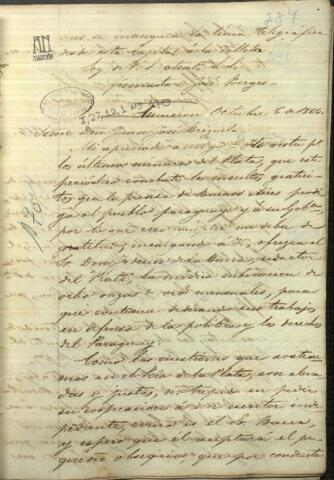 384
nes se inaugura la línea telegrafica
desde esta capital a la Villeta.
Soy de V. S. atento S. S.
firmado José Berges
AN
ASUNCIÓN
I-22,12,1 Nº
Asuncion Octubre 6 de 1864.
Señor don Juan José Brizuela
Mi apreciado amigo: He visto pr.
los últimos números del Plata, que este
periódico combate los insultos gratui-
tos que la prensa de Buenos Aires prodi-
ga al pueblo paraguayo y a su Gobno.
por lo que creo un deber de
gratitud, encargando a V. ofrezca al
Sr. Don de la Barra, redactor
del "Plata", la módica de
ocho onzas de oro mensuales, para
que continúe dedicando sus trabajos
en defensa de la política y los derechos
del Paraguay.
Como las cuestiones que sostene-
mos en el Río de la Plata, son eleva-
das y justas, no trepido en pedir
su cooperación a un escritor inde-
pendiente, como es el Sr. Barra,
y espero que él aceptará el pe-
queño obsequio que por conducto